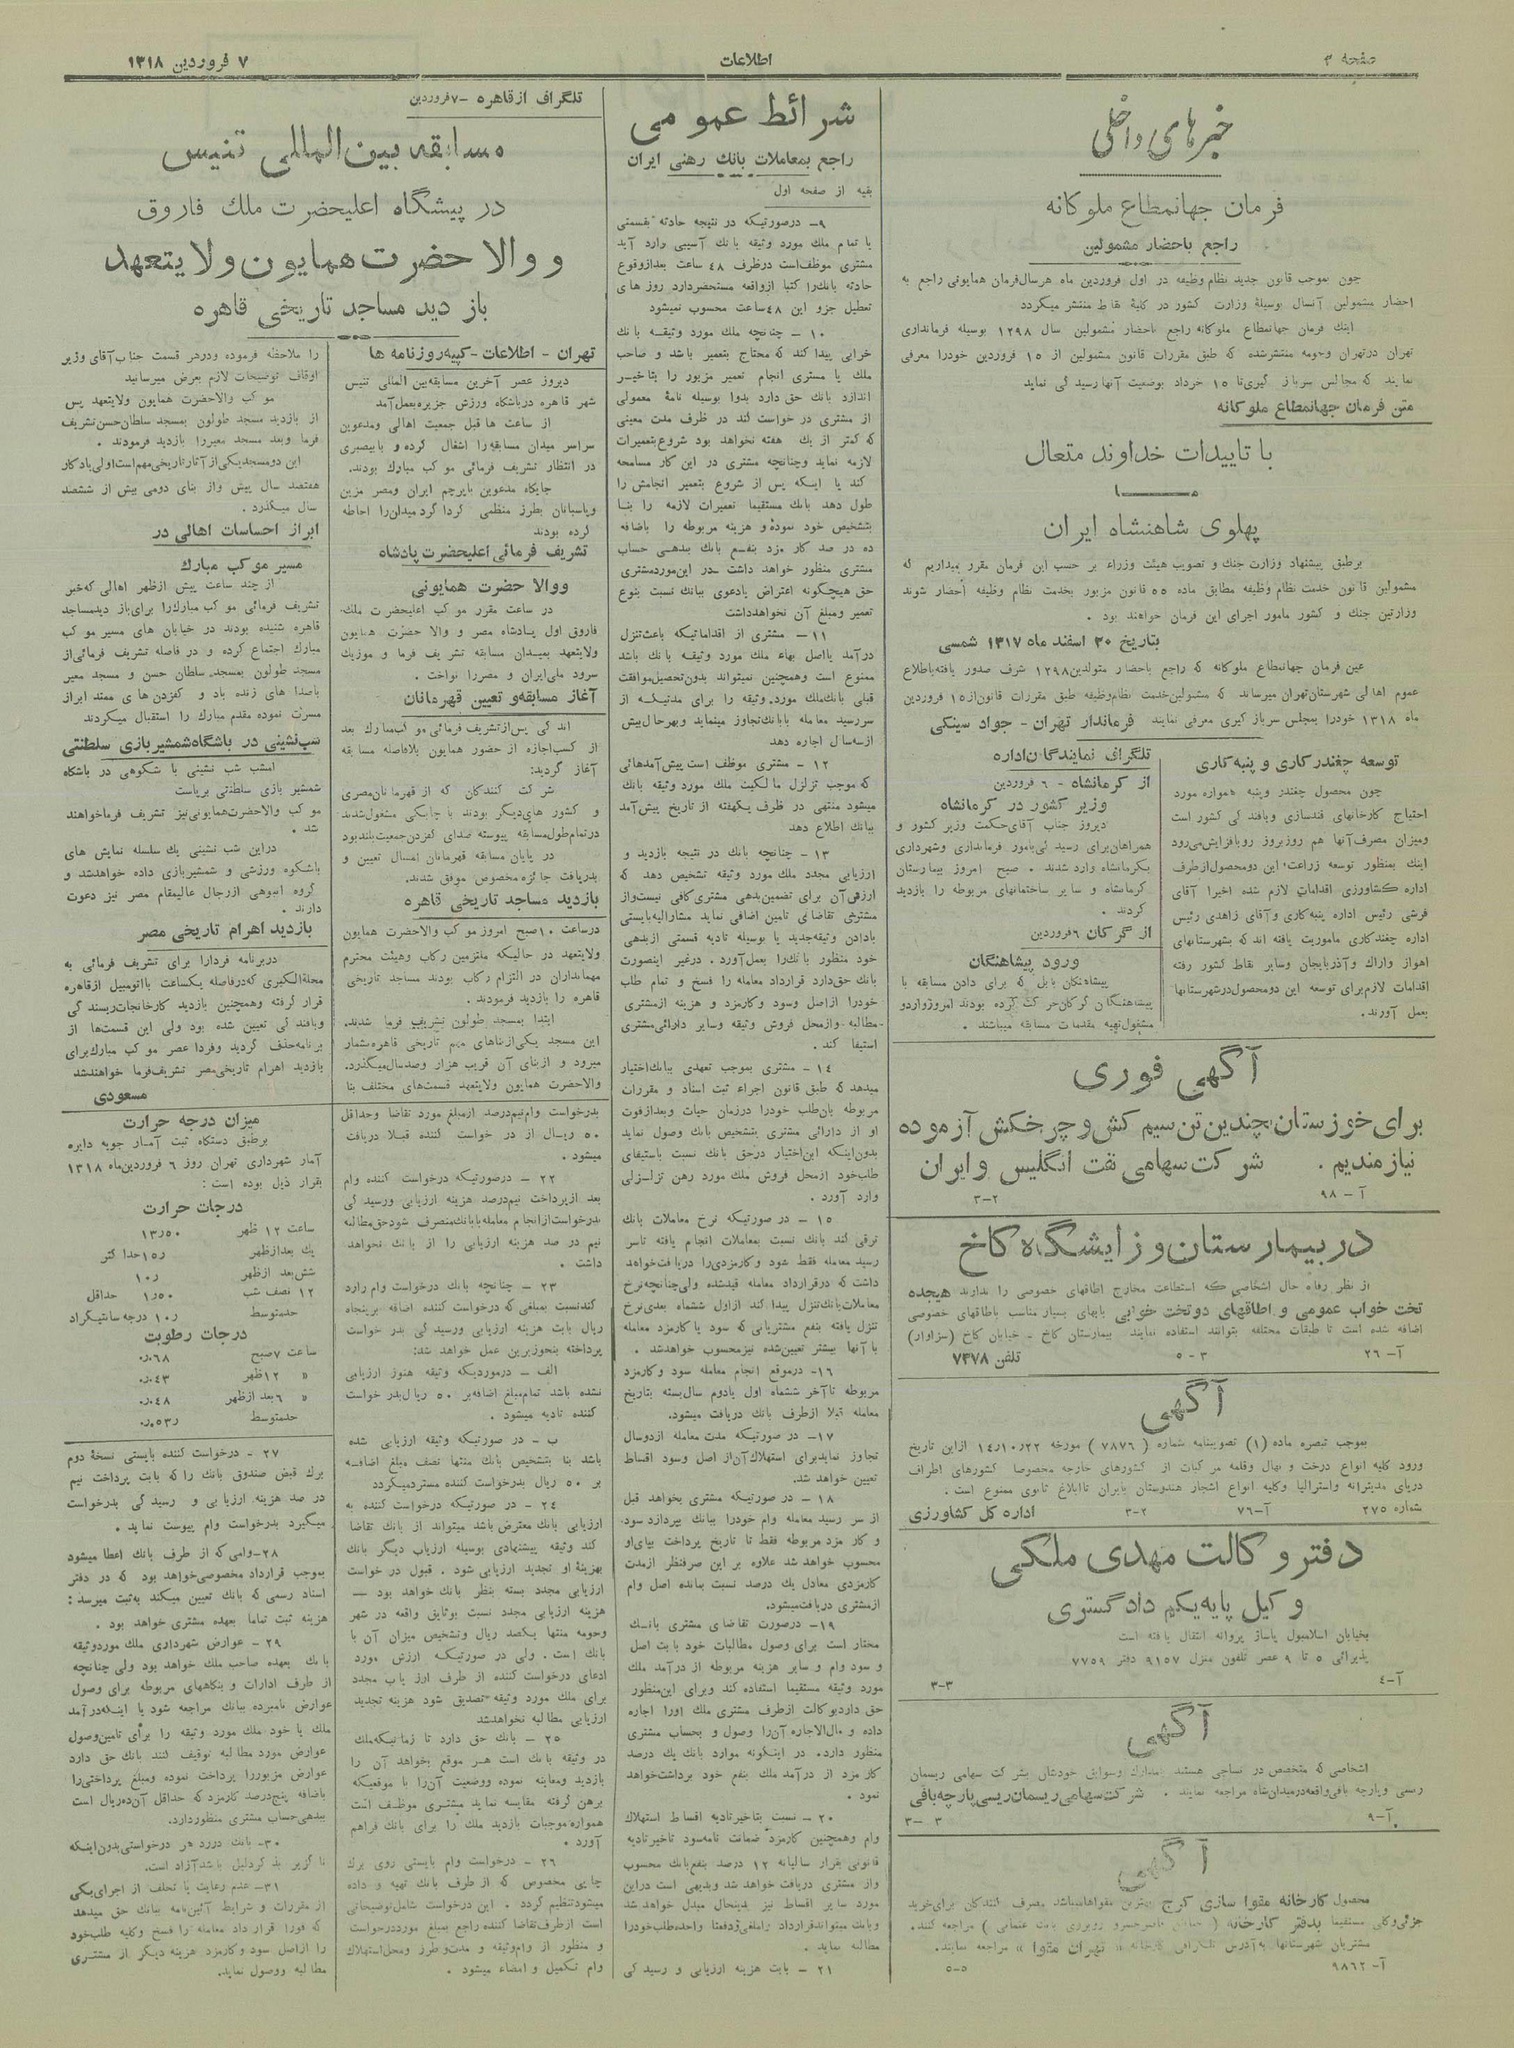 صفحه ۳
اطلاعات
۷ فروردین ۱۳۱۸
خبرهای داخلی
فرمان جهانمطاع ملوکانه
راجع باحضار مشمولین
چون بموجب قانون جدید نظام وظیفه در اول فروردین ماه هرسال فرمان همایونی راجع به
احضار مشمولین آنسال بوسیلهٔ وزارت کشور در کلیهٔ نقاط منتشر میگردد
اینك فرمان جهانمطاع ملوکانه راجع باحضار مشمولین سال ۱۲۹۸ بوسیله فرمانداری
تهران درتهران وحومه منتشرشده که طبق مقررات قانون مشمولین از ۱۵ فروردین خودرا معرفی
نمایند که مجالس سرباز گیری تا ۱۵ خرداد بوضعیت آنها رسیدگی نماید
متن فرمان جهانمطاع ملوکانه
با تاییدات خداوند متعال
ما
پهلوی شاهنشاه ایران
برطبق پیشنهاد وزارت جنك و تصویب هیئت وزراء بر حسب این فرمان مقرر میداریم که
مشمولین قانون خدمت نظام وظیفه مطابق ماده ۵۵ قانون مزبور بخدمت نظام وظیفه احضار شوند
وزارتین جنك و کشور مامور اجرای این فرمان خواهند بود .
بتاریخ ۳۰ اسفند ماه ۱۳۱۷ شمسی
عین فرمان جهانمطاع ملوکانه که راجع باحضار متولدین ۱۲۹۸ شرف صدور یافته باطلاع
عموم اهالی شهرستان تهران میرساند که مشمولین خدمت نظام وظیفه طبق مقررات قانون از ۱۵ فروردین
ماه ۱۳۱۸ خودرا بمجلس سرباز گیری معرفی نمایند فرماندار تهران - جواد سینکی
توسعه چغندرکاری و پنبه کاری
چون محصول چغندر وپنبه همواره مورد
احتیاج کارخانهای قندسازی وبافندگی کشور است
ومیزان مصرف آنها هم روزبروز روبافزایش می‌رود
اینك بمنظور توسعه زراعت این دومحصول از طرف
اداره کشاورزی اقدامات لازم شده اخیرا آقای
فرشی رئیس اداره پنبه کاری وآقای زاهدی رئیس
اداره چغندکاری ماموریت یافته اند که بشهرستانهای
اهواز واراك وآذربایجان وسایر نقاط کشور رفته
اقدامات لازم برای توسعه این دومحصول درشهرستانها
بعمل آورند.
تلگراف نمایندگان اداره
از کرمانشاه - ۶ فروردین
وزیر کشور در کرمانشاه
دیروز جناب آقای حکمت وزیر کشور و
همراهان برای رسیدگی بامور فرمانداری وشهرداری
بکرمانشاه وارد شدند . صبح امروز بیمارستان
کرمانشاه و سایر ساختمانهای مربوطه را بازدید
کردند .
از گرگان ۶ فروردین
ورود پیشاهنگان
پیشاهنگان بابل که برای دادن مسابقه با
پیشاهنگان گرگان حرکت کرده بودند امروز وارد و
مشغول تهیه مقدمات مسابقه میباشند .
آگهی فوری
برای خوزستان چندین تن سیم کش و چرخکش آزموده
نیازمندیم . شرکت سهامی نفت انگلیس و ایران
آ - ۹۸ ۲-۳
دربیمارستان و زایشگاه کاخ
از نظر رفاه حال اشخاصی که استطاعت مخارج اطاقهای خصوصی را ندارند هیجده
تخت خواب عمومی و اطاقهای دوتخت خوابی ببهای بسیار مناسب باطاقهای خصوصی
اضافه شده است تا طبقات مختلفه بتوانند استفاده نمایند بیمارستان کاخ - خیابان کاخ (سزاوار)
آ- ۲۶ ۳ - ۵ تلفن ۷۳۷۸
آگهی
بموجب تبصره ماده (۱) تصویبنامه شماره (۷۸۷۶) مورخه ۱۴٫۱۰٫۲۲ ازاین تاریخ
ورود کلیه انواع درخت و نهال وقلمه مرکبات از کشورهای خارجه مخصوصا کشورهای اطراف
دریای مدیترانه واسترالیا وکلیه انواع اشجار هندوستان بایران تاابلاغ ثانوی ممنوع است .
شماره ۲۷۵ آ-۷۶ ۲-۳ اداره کل کشاورزی
دفتر وکالت مهدی ملکی
وکیل پایه یکم دادگستری
بخیابان اسلامبول پاساژ پروانه انتقال یافته است
پذیرائی ۵ تا ۹ عصر تلفون منزل ۹۱۵۷ دفتر ۷۷۵۹
آ-۴ ۳-۳
آگهی
اشخاصی که متخصص در نساجی هستند بامدارك وسوابق خودشان بشرکت سهامی ریسمان
ریسی وپارچه بافی واقعه درمیدان شاه مراجعه نمایند . شرکت سهامی ریسمان ریسی پارچه بافی
آ-۹ ۳-۳
آگهی
محصول کارخانه مقوا سازی کرج بهترین مقواهامیباشد مصرف کنندگان برای خرید
جزئی وکلی مستقیما بدفتر کارخانه مراجعه کنند.
مشتریان شهرستانها به آدرس تلگرافی کارخانه « تهران مقوا » مراجعه نمایند.
آ- ۹۸۶۲ ۵-۵
شرائط عمومی
راجع بمعاملات بانك رهنی ایران
بقیه از صفحه اول
۹- درصورتیکه در نتیجه حادثه بقسمتی
یا تمام ملك مورد وثیقه بانك آسیبی وارد آید
مشتری موظف است درظرف ۴۸ ساعت بعدازوقوع
حادثه بانك را کتبا ازواقعه مستحضردارد روز های
تعطیل جزو این ۴۸ ساعت محسوب نمیشود
۱۰ - چنانچه ملك مورد وثیقه بانك
خرابی پیدا کند که محتاج بتعمیر باشد و صاحب
ملك یا مشتری انجام تعمیر مزبور را بتاخیر
اندازد بانك حق دارد بدوا بوسیله نامهٔ معمولی
از مشتری در خواست کند در ظرف مدت معینی
که کمتر از یك هفته نخواهد بود شروع بتعمیرات
لازمه نماید وچنانچه مشتری در این کار مسامحه
کند یا اینکه پس از شروع بتعمیر انجامش را
طول دهد بانك مستقیما تعمیرات لازمه را بنا
بتشخیص خود نموده و هزینه مربوطه را باضافه
ده در صد کار مزد بنفع بانك ببدهی حساب
مشتری منظور خواهد داشت - در این مورد مشتری
حق هیچگونه اعتراض یادعوی ببانك نسبت بنوع
تعمیر ومبلغ آن نخواهدداشت
۱۱ - مشتری از اقداماتیکه باعث تنزل
درآمد یااصل بهاء ملك مورد وثیقه بانك باشد
ممنوع است وهمچنین نمیتواند بدون تحصیل موافقت
قبلی بانك ملك مورد وثیقه را برای مدتیکه از
سررسید معامله بابانك تجاوز مینماید وبهرحال بیش
ازسه سال اجاره دهد
۱۲ - مشتری موظف است پیش آمدهائی
که موجب تزلزل مالکیت ملك مورد وثیقه بانك
میشود منتهی در ظرف یکهفته از تاریخ پیش آمد
ببانك اطلاع دهد
۱۳ - چنانچه بانك در نتیجه بازدید و
ارزیابی مجدد ملك مورد وثیقه تشخیص دهد که
ارزش آن برای تضمین بدهی مشتری کافی نیست و از
مشتری تقاضای تامین اضافی نماید مشارالیه بایستی
بادادن وثیقه جدید یا بوسیله تادیه قسمتی ازبدهی
خود منظور بانك را بعمل آورد . درغیر اینصورت
بانك حق دارد قرارداد معامله را فسخ و تمام طلب
خودرا ازاصل وسود وکارمزد و هزینه ازمشتری
مطالبه وازمحل فروش وثیقه وسایر دارائی مشتری
استیفا کند .
۱۴ - مشتری بموجب تعهدی ببانك اختیار
میدهد که طبق قانون اجراء ثبت اسناد و مقررات
مربوطه بآن طلب خودرا درزمان حیات وبعدازفوت
او از دارائی مشتری بتشخیص بانك وصول نماید
بدون اینکه این اختیار درحق بانك نسبت باستیفای
طلب خود ازمحل فروش ملك مورد رهن تزلزلی
وارد آورد .
۱۵ - در صورتیکه نرخ معاملات بانك
ترقی کند بانك نسبت بمعاملات انجام یافته تاسر
رسید معامله فقط سود و کارمزدی را دریافت خواهد
داشت که درقرارداد معامله قیدشده ولی چنانچه نرخ
معاملات بانك تنزل پیدا کند ازاول ششماه بعدی نرخ
تنزل یافته بنفع مشتریانی که سود یا کارمزد معامله
با آنها بیشتر تعیین شده نیز محسوب خواهدشد .
۱۶- درموقع انجام معامله سود وکارمزد
مربوطه تاآخر ششماه اول یادوم سال بسته بتاریخ
معامله قبلا ازطرف بانك دریافت میشود.
۱۷- در صورتیکه مدت معامله ازدوسال
تجاوز نماید برای استهلاك آن از اصل وسود اقساط
تعیین خواهد شد.
۱۸ - در صورتیکه مشتری بخواهد قبل
از سر رسید معامله وام خودرا ببانك بپردازد سود
و کار مزد مربوطه فقط تا تاریخ پرداخت بپای او
محسوب خواهد شد علاوه بر این صرفنظر ازمدت
کارمزدی معادل یك درصد نسبت بمانده اصل وام
ازمشتری دریافت میشود.
۱۹- درصورت تقاضای مشتری بانك
مختار است برای وصول مطالبات خود بابت اصل
و سود وام و سایر هزینه مربوطه از درآمد ملك
مورد وثیقه مستقیما استفاده کند وبرای این منظور
حق دارد بوکالت ازطرف مشتری ملك اورا اجاره
داده و مال الاجاره آن را وصول و بحساب مشتری
منظور دارد. در اینگونه موارد بانك یك درصد
کار مزد از درآمد ملك بنفع خود برداشت خواهد
نمود .
۲۰ - نسبت بتاخیر تادیه اقساط استهلاك
وام وهمچنین کارمزد ضمانت نامه سود تاخیر تادیه
قانونی بقرار سالیانه ۱۲ درصد بنفع بانك محسوب
واز مشتری دریافت خواهد شد وبدیهی است دراین
مورد سایر اقساط نیز بدینحال مبدل خواهد شد
وبانك میتواند قرارداد راملغی ودفعتا واحده طلب خودرا
مطالبه نماید .
۲۱ - بابت هزینه ارزیابی و رسیدگی
تلگراف از قاهره - ۷ فروردین
مسابقه بین المللی تنیس
در پیشگاه اعلیحضرت ملك فاروق
و والا حضرت همایون ولایتعهد
بازدید مساجد تاریخی قاهره
تهران - اطلاعات - کپیه روزنامه ها
دیروز عصر آخرین مسابقه بین المللی تنیس
شهر قاهره درباشگاه ورزش جزیره بعمل آمد
از ساعت ها قبل جمعیت اهالی ومدعوین
سراسر میدان مسابقه را اشغال کرده و بابیصبری
در انتظار تشریف فرمائی موکب مبارك بودند.
جایگاه مدعوین باپرچم ایران ومصر مزین
وپاسبانان بطرز منظمی گرداگرد میدان را احاطه
کرده بودند
تشریف فرمائی اعلیحضرت پادشاه
ووالا حضرت همایونی
در ساعت مقرر موکب اعلیحضرت ملك
فاروق اول پادشاه مصر و والا حضرت همایون
ولایتعهد بمیدان مسابقه تشریف فرما و موزیك
سرود ملی ایران و مصررا نواخت .
آغاز مسابقه و تعیین قهرمانان
اندکی پس ازتشریف فرمائی موکب مبارك بعد
از کسب اجازه از حضور همایون بلافاصله مسابقه
آغاز گردید:
شرکت کنندگان که از قهرمانان مصری
و کشور های دیگر بودند با چابکی مشغول شدند
درتمام طول مسابقه پیوسته صدای کفزدن جمعیت بلند بود
در پایان مسابقه قهرمانان امسال تعیین و
بدریافت جائزه مخصوص موفق شدند.
بازدید مساجد تاریخی قاهره
درساعت ۱۰ صبح امروز موکب والاحضرت همایون
ولایتعهد در حالیکه ملتزمین رکاب وهیئت محترم
مهمانداران در التزام رکاب بودند مساجد تاریخی
قاهره را بازدید فرمودند .
ابتدا بمسجد طولون تشریف فرما شدند.
این مسجد یکی از بناهای مهم تاریخی قاهره بشمار
میرود و ازبنای آن قریب هزار وصد سال میگذرد.
والاحضرت همایون ولایتعهد قسمت‌های مختلف بنا
را ملاحظه فرموده ودرهر قسمت جناب آقای وزیر
اوقاف توضیحات لازم بعرض میرسانید
موکب والاحضرت همایون ولایتعهد پس
از بازدید مسجد طولون بمسجد سلطان حسن تشریف
فرما وبعد مسجد معیر را بازدید فرمودند .
این دومسجد یکی از آثار تاریخی مهم است اولی یادگار
هفتصد سال پیش واز بنای دومی بیش از ششصد
سال میگذرد .
ابراز احساسات اهالی در
مسیر موکب مبارك
از چند ساعت پیش ازظهر اهالی که خبر
تشریف فرمائی موکب مبارك را برای باز دید مساجد
قاهره شنیده بودند در خیابان های مسیر موکب
مبارك اجتماع کرده و در فاصله تشریف فرمائی از
مسجد طولون بمسجد سلطان حسن و مسجد معیر
باصدا های زنده باد و کفزدن های ممتد ابراز
مسرت نموده مقدم مبارك را استقبال میکردند
شب نشینی در باشگاه شمشیربازی سلطنتی
امشب شب نشینی با شکوهی در باشگاه
شمشیر بازی سلطنتی برپاست
موکب والاحضرت همایونی نیز تشریف فرماخواهند
شد .
دراین شب نشینی یك سلسله نمایش های
باشکوه ورزشی و شمشیربازی داده خواهدشد و
گروه انبوهی ازرجال عالیمقام مصر نیز دعوت
دارند .
بازدید اهرام تاریخی مصر
دربرنامه فردارا برای تشریف فرمائی به
محلة الکبری که درفاصله یکساعت بااتومبیل ازقاهره
قرار گرفته وهمچنین بازدید کارخانجات ریسندگی
وبافندگی تعیین شده بود ولی این قسمت‌ها از
برنامه حذف گردید وفردا عصر موکب مبارك برای
بازدید اهرام تاریخی مصر تشریف فرما خواهندشد
مسعودی
بدرخواست وام نیم درصد ازمبلغ مورد تقاضا وحداقل
۵۰ ریال از در خواست کننده قبلا دریافت
میشود .
۲۲ - درصورتیکه درخواست کننده وام
بعد ازپرداخت نیم درصد هزینه ارزیابی ورسیدگی
بدرخواست از انجام معامله بابانك منصرف شود حق مطالبه
نیم در صد هزینه ارزیابی را از بانك نخواهد
داشت .
۲۳ - چنانچه بانك درخواست وام رارد
کند نسبت بمبلغی که درخواست کننده اضافه برپنجاه
ریال بابت هزینه ارزیابی ورسیدگی بدر خواست
پرداخته بنحو زیرین عمل خواهد شد:
الف - درموردیکه وثیقه هنوز ارزیابی
نشده باشد تمام مبلغ اضافه بر ۵۰ ریال بدر خواست
کننده تادیه میشود .
ب - در صورتیکه وثیقه ارزیابی شده
باشد بنا بتشخیص بانك منتها نصف مبلغ اضافه
بر ۵۰ ریال بدرخواست کننده مسترد میگردد
۲۴ - در صورتیکه درخواست کننده به
ارزیابی بانك معترض باشد میتواند از بانك تقاضا
کند وثیقه پیشنهادی بوسیله ارزیاب دیگر بانك
بهزینهٔ او تجدید ارزیابی شود . قبول در خواست
ارزیابی مجدد بسته بنظر بانك خواهد بود -
هزینه ارزیابی مجدد نسبت بوثایق واقعه در شهر
وحومه منتها یکصد ریال وتشخیص میزان آن با
بانك است . ولی در صورتیکه ارزش مورد
ادعای درخواست کننده از طرف ارزیاب مجدد
برای ملك مورد وثیقه تصدیق شود هزینه تجدید
ارزیابی مطالبه نخواهد شد
۲۵ - بانك حق دارد تا زمانیکه ملك
در وثیقه بانك است هر موقع بخواهد آن را
بازدید ومعاینه نموده ووضعیت آن را با موقعیکه
برهن گرفته مقایسه نماید مشتری موظف است
همواره موجبات بازدید ملك را برای بانك فراهم
آورد .
۲۶ - درخواست وام بایستی روی برك
چاپی مخصوص که از طرف بانك تهیه و داده
میشود تنظیم گردد . این درخواست شامل توضیحاتی
است ازطرف تقاضا کننده راجع بمبلغ مورد درخواست
و منظور از وام وثیقه و مدت و طرز و محل استهلاك
وام تکمیل و امضاء میشود .
میزان درجه حرارت
برطبق دستگاه ثبت آمار جویه دایره
آمار شهرداری تهران روز ۶ فروردین ماه ۱۳۱۸
بقرار ذیل بوده است :
درجات حرارت
ساعت ۱۲ ظهر ۱۳٫۵۰
یك بعدازظهر ۱۵٫ حداکثر
شش بعد ازظهر ۱۰٫
۱۲ نصف شب ۱٫۵۰ حداقل
حدمتوسط ۱۰٫ درجه سانتیگراد
درجات رطوبت
ساعت ۷ صبح ۰٫۶۸
« ۱۲ ظهر ۰٫۴۳
« ۶ بعد ازظهر ۰٫۴۸
حدمتوسط ۰٫۵۳
۲۷ - درخواست کننده بایستی نسخهٔ دوم
برك قبض صندوق بانك را که بابت پرداخت نیم
در صد هزینه ارزیابی و رسیدگی بدرخواست
میگیرد بدرخواست وام پیوست نماید .
۲۸- وامی که از طرف بانك اعطا میشود
بموجب قرارداد مخصوصی خواهد بود که در دفتر
اسناد رسمی که بانك تعیین میکند به ثبت میرسد :
هزینه ثبت تماما بعهده مشتری خواهد بود .
۲۹ - عوارض شهرداری ملك مورد وثیقه
بانك بعهده صاحب ملك خواهد بود ولی چنانچه
از طرف ادارات و بنگاههای مربوطه برای وصول
عوارض نامبرده ببانك مراجعه شود یا اینکه درآمد
ملك یا خود ملك مورد وثیقه را برای تامین وصول
عوارض مورد مطالبه توقیف کنند بانك حق دارد
عوارض مزبور را پرداخت نموده ومبلغ پرداختی را
باضافه پنج درصد کارمزد که حداقل آن ده ریال است
ببدهی حساب مشتری منظور دارد.
۳۰- بانك دررد هر درخواستی بدون اینکه
ناگزیر بذکر دلیل باشد آزاد است.
۳۱- عدم رعایت یا تخلف از اجرای یکی
از مقررات و شرایط آئین نامه ببانك حق میدهد
که فورا قرار داد معامله را فسخ وکلیه طلب خود
را ازاصل سود وکارمزد هزینه دیگر از مشتری
مطالبه ووصول نماید.